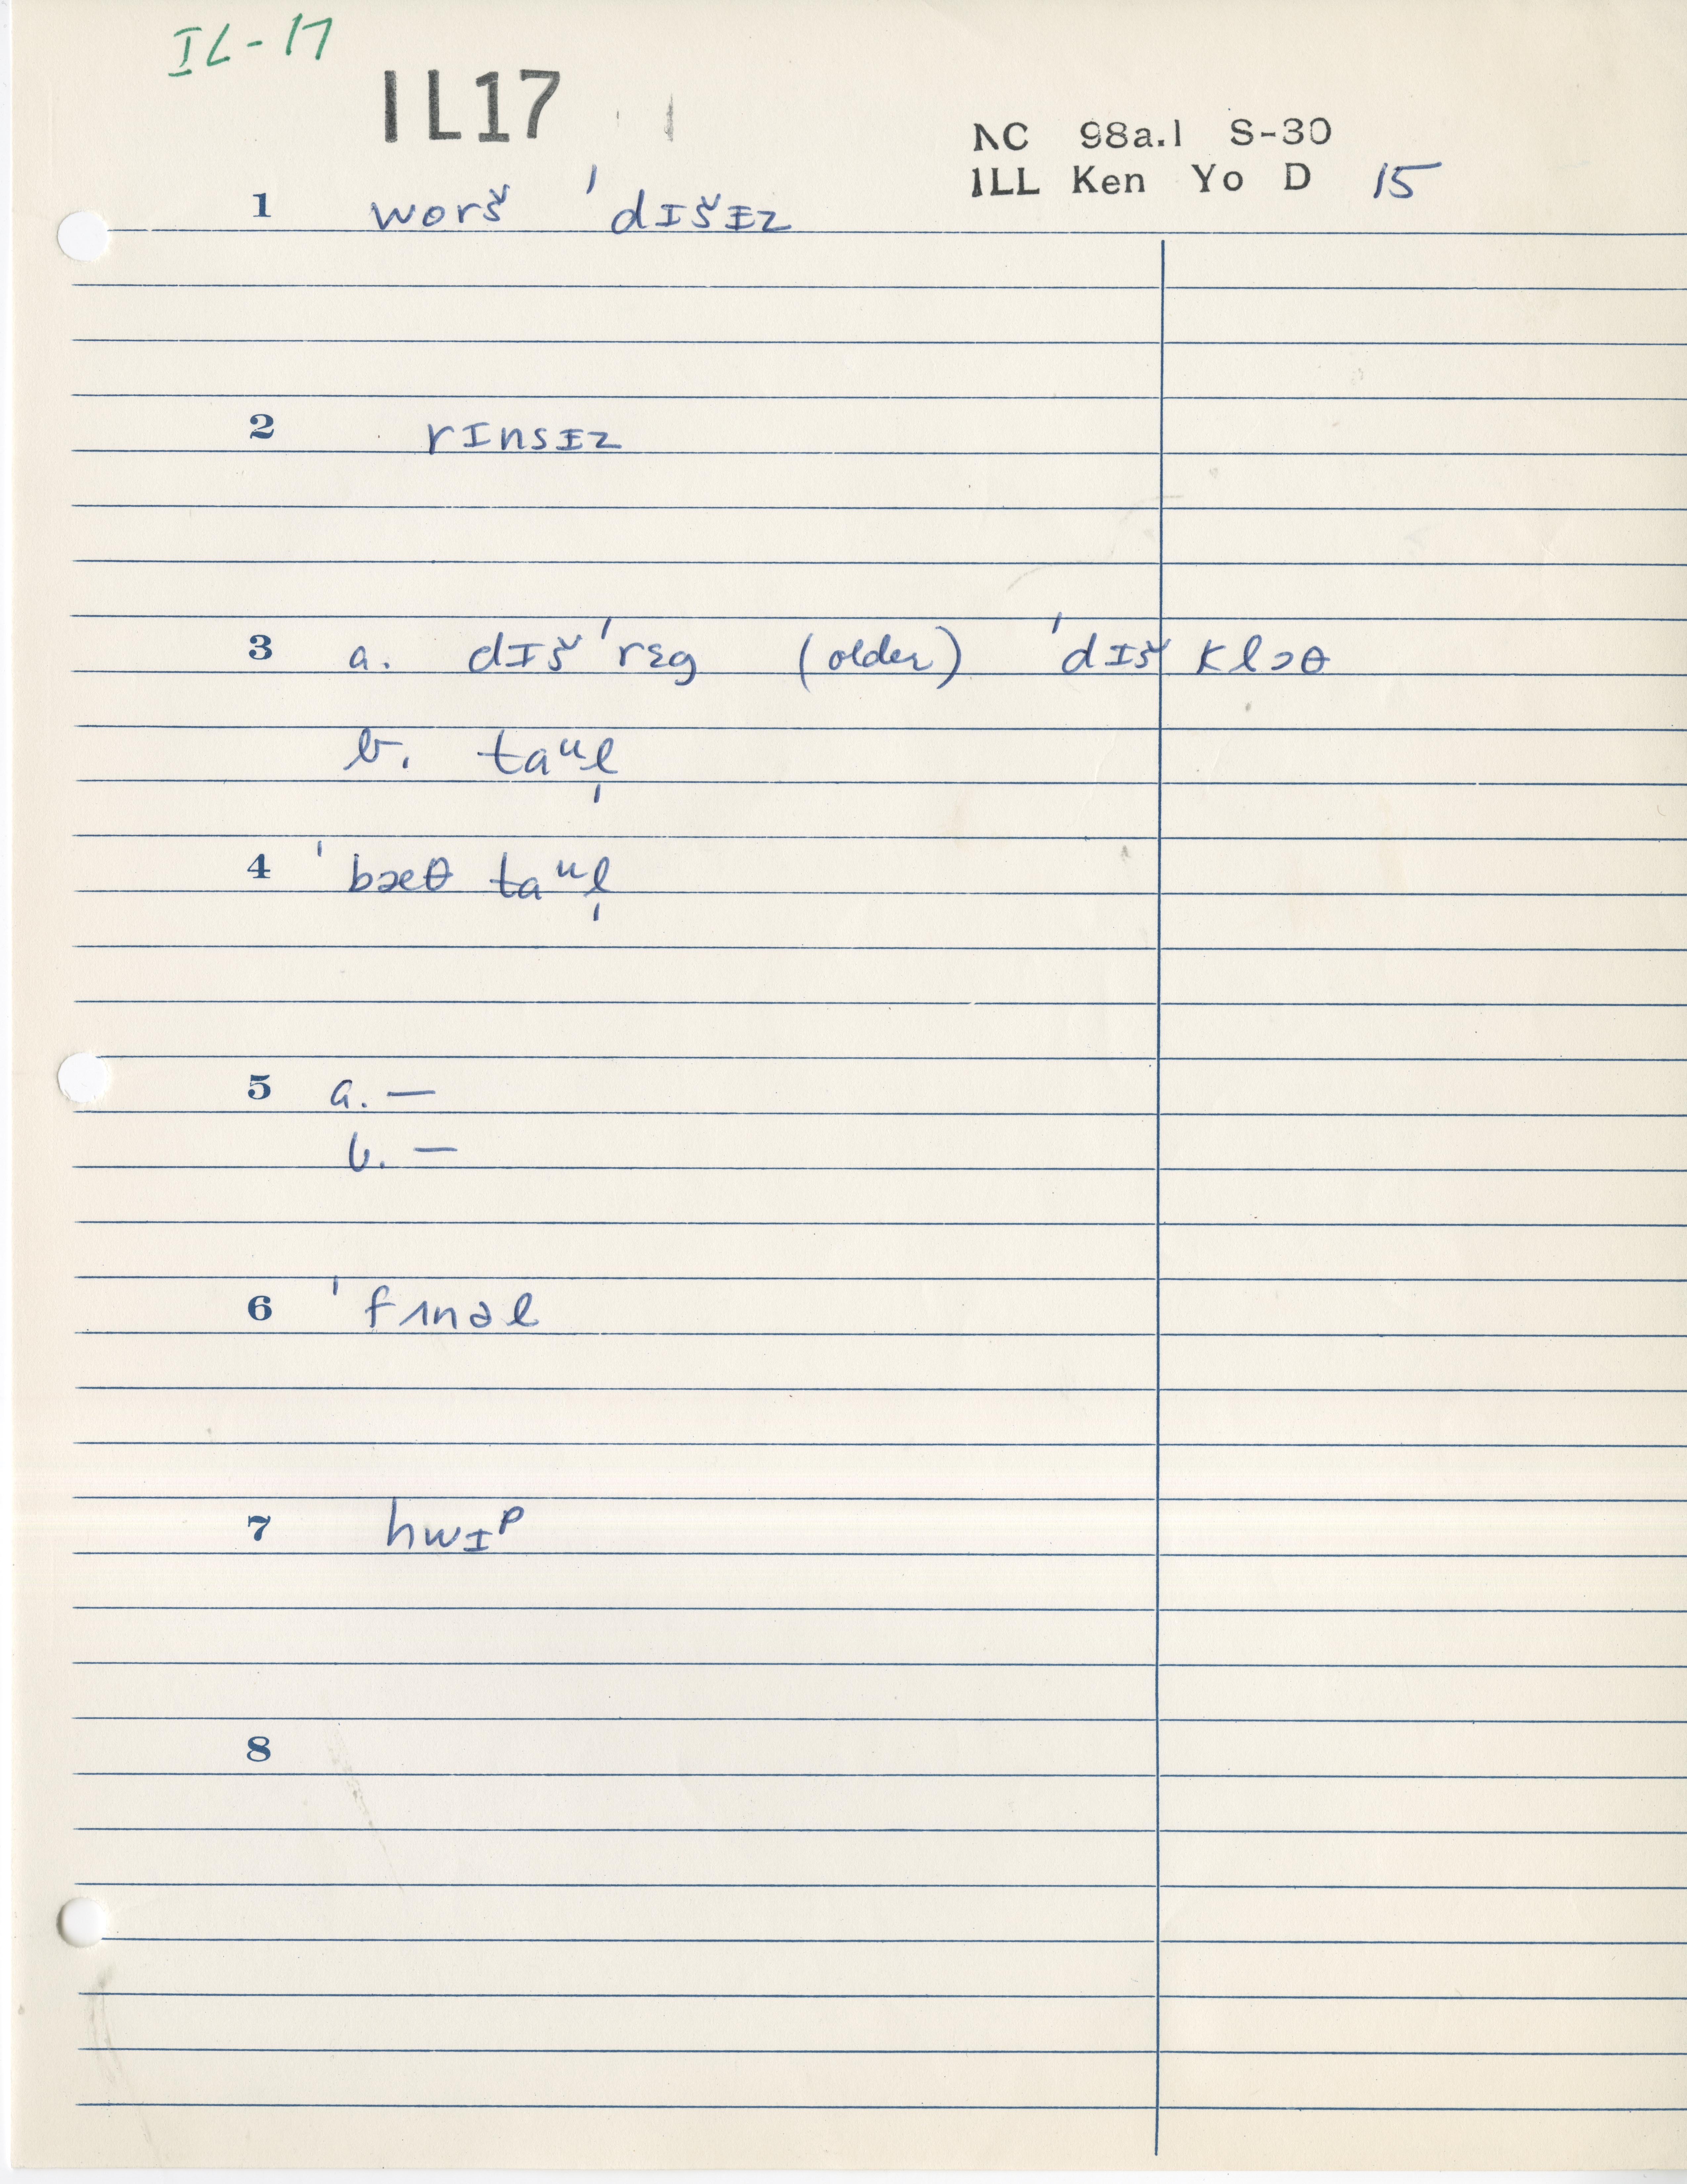 IL-17
IL17
NC 98a.1 S-30
ILL Ken Yo D 15
1 worš ˈdɪšɪz
2 rɪnsɪz
3 a. dɪš ˈrɛg (older) ˈdɪš klɔθ
b. taᵘl̩
4 ˈbæθ taᵘl̩
5 a. —
b. —
6 ˈfɪnəl
7 hwɪᵖ
8